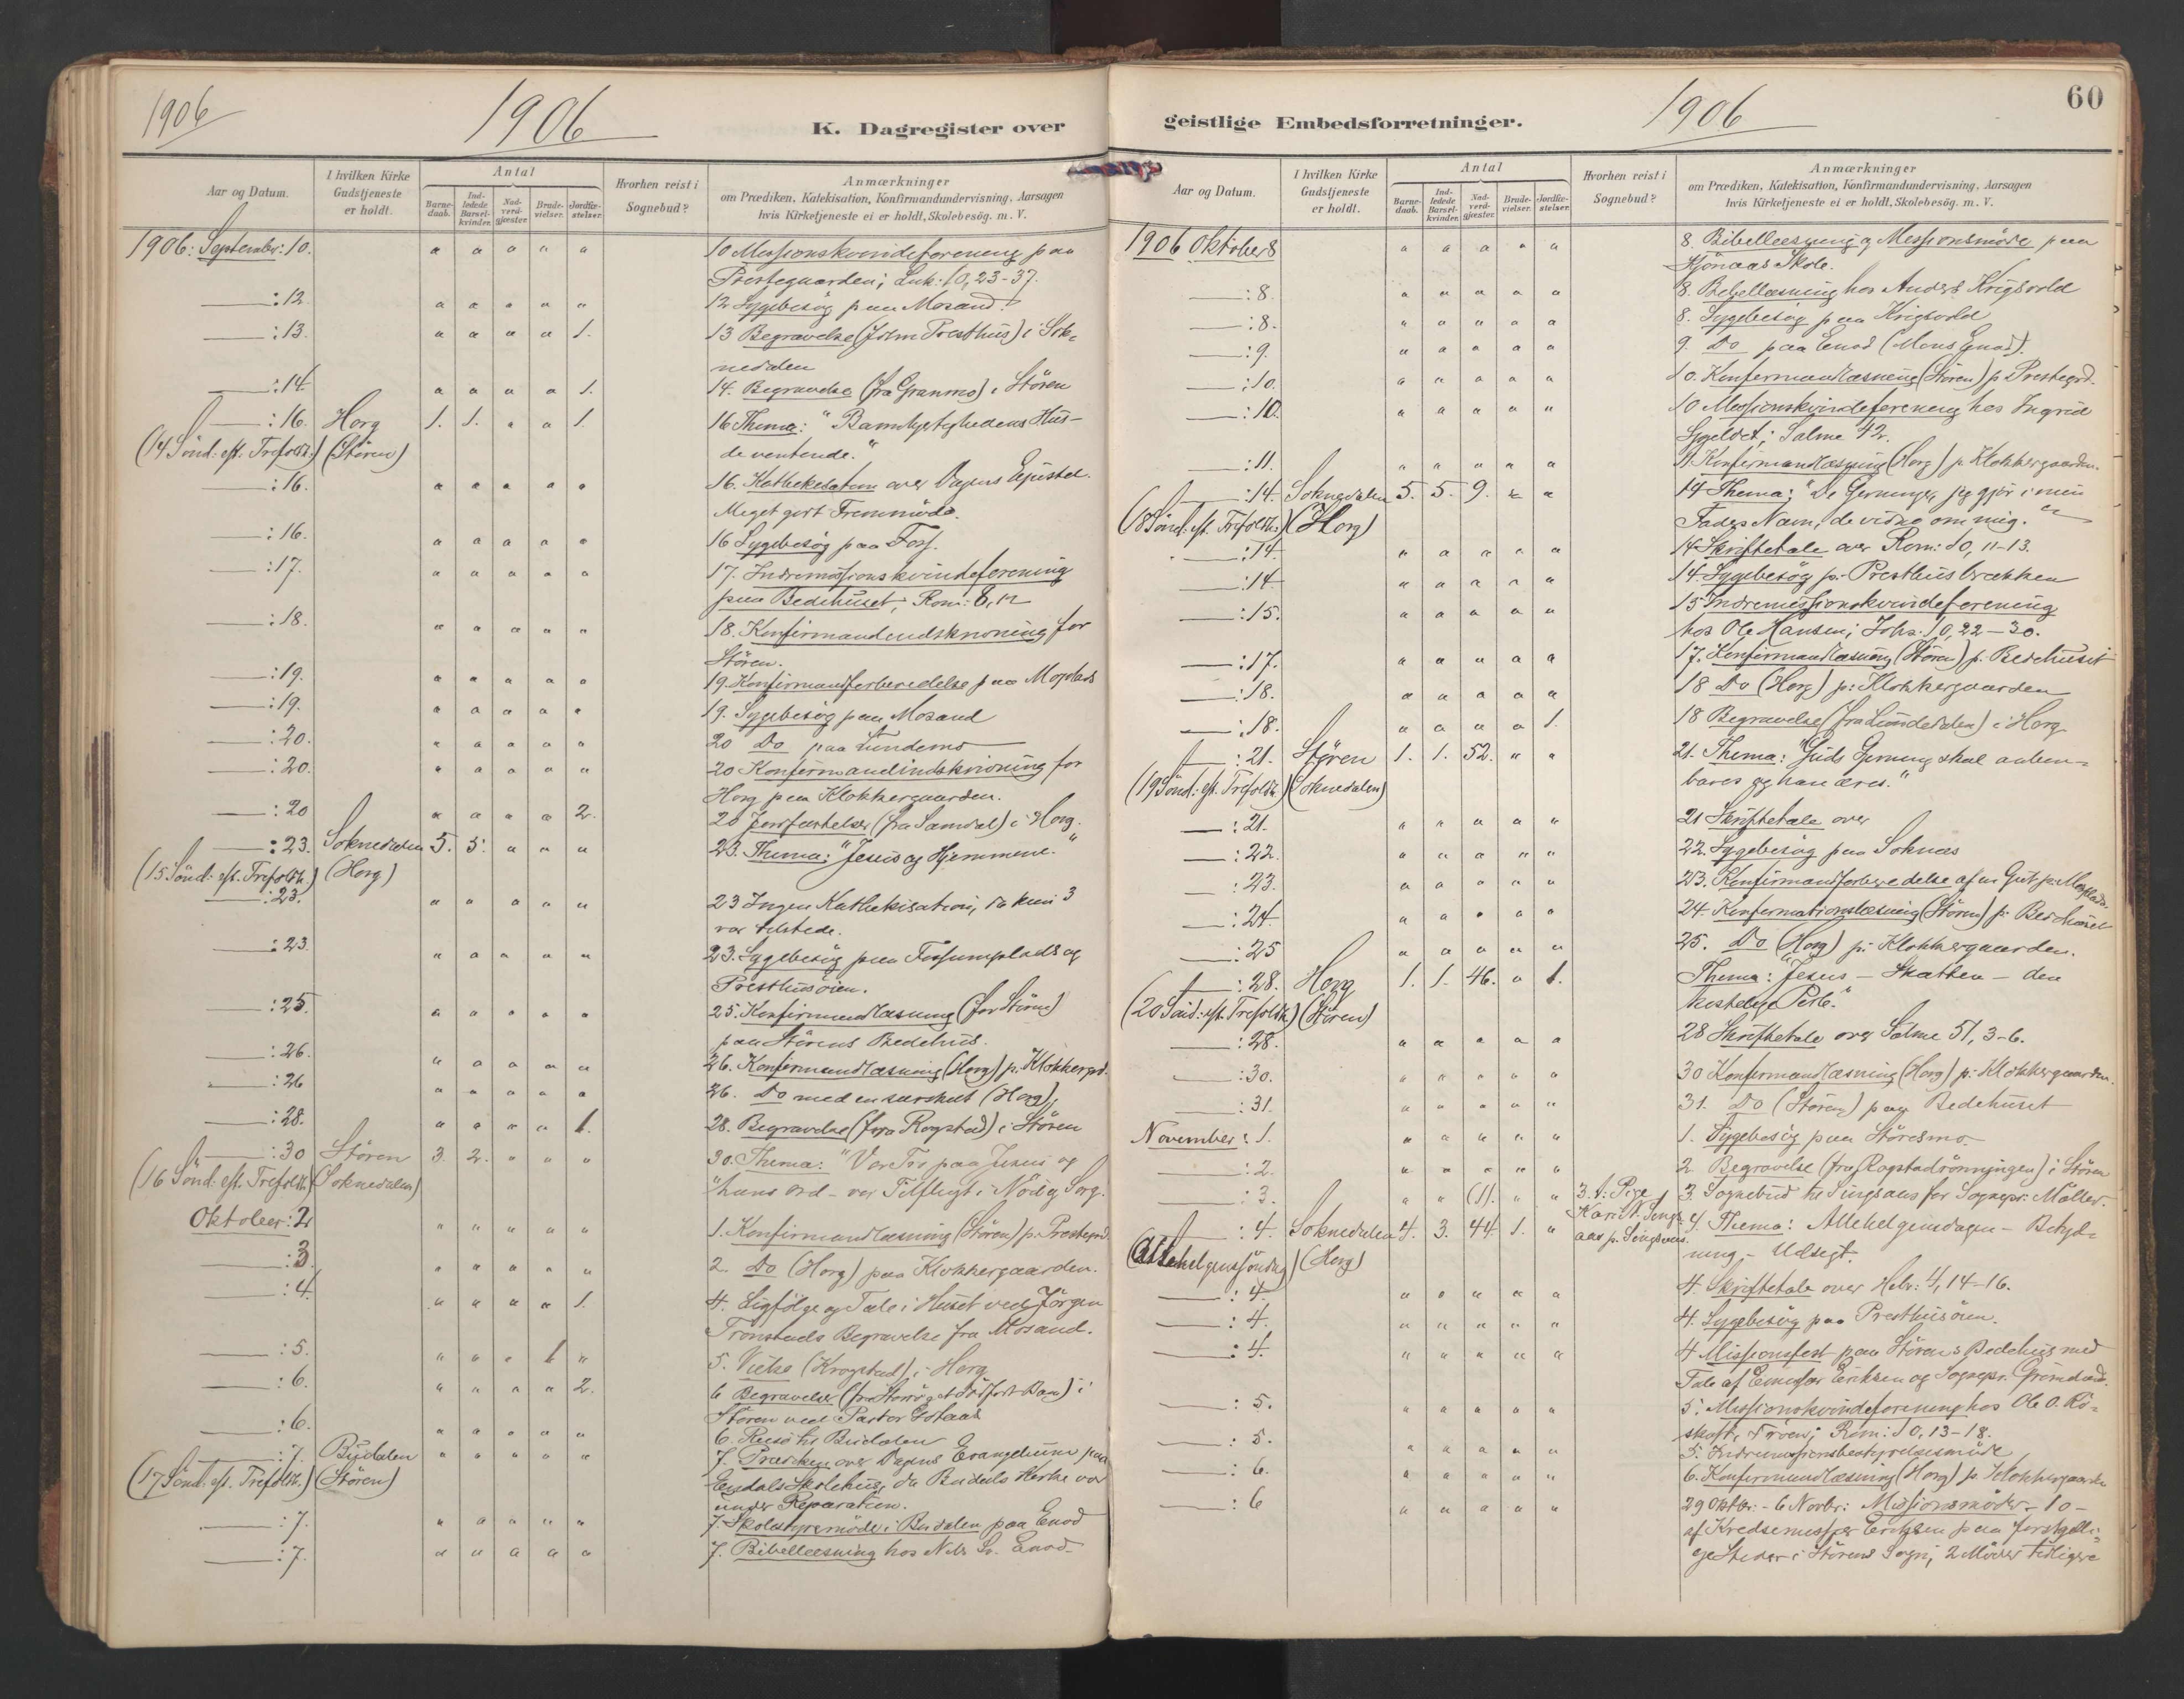 1906
1906
K. Dagregister over
Aar og Datum.
I hvilken Kirke Gudstjeneste er holdt.
Antal
Barne-daab.
Ind-ledede Barsel-kvinder.
Nad-verd-gjæster.
Brude-vielser.
Jordfæ-stelser.
Hvorhen reist i Sognebud?
Anmærkninger
om Prædiken, Katekisation, Konfirmandundervisning, Aarsagen
hvis Kirketjeneste ei er holdt, Skolebesøg. m. V.
1906: September: 10. " " " " " 10 Missionskvindeforening paa
Prestegaarden; Luk: 10, 23-37.
: 12. " " " " " 12 Sygebesøg paa Mosand.
: 13. " " " " 1. 13 Begravelse ( Presthus) i Sok-
nedalen
: 14. " " " " 1. 14. Begravelse (fra Granmo) i Stören
: 16. Horg 1. 1. " " 1. 16 Thema: "Barmhjertighedens Hus-
(14 Sönd: eft. Trefoldh.) (Stören) de ventende."
: 16. " " " " " 16. Kathekesation over Dagens Epistel.
Meget godt Fremmöde.
: 16. " " " " " 16 Sygebesøg paa
: 17. " " " " " 17. Indremissionskvindeforening
paa Bedehuset, Rom: 8, 12
: 18. " " " " " 18. Konfirmandindskrivning for
Stören.
: 19. " " " " " 19. Konfirmandforberedelse paa
: 19. " " " " " 19. Sygebesøg paa Mosand
: 20. " " " " " 20 Do paa Lundemo
: 20. " " " " " 20 Konfirmandindskrivning for
Horg paa Klokkergaarden.
: 20 " " " " 2. 20 Jordfæstelser (fra Samdal) i Horg.
: 23. Soknedalen 5. 5. " " " 23. Thema: "Jesus og Hjemmene."
(15 Sönd: eft. Trefoldh.) (Horg)
: 23. " " " " " 23 Ingen Kathekisation, da kun 3
var tilstede.
: 23. " " " " " 23. Sygebesøg paa Fossumplads og
Presthusöien.
: 25. " " " " " 25. Konfirmandlæsning (for Stören)
paa Störens Bedehus.
: 26. " " " " " 26. Konfirmandlæsning (Horg) p. Klokkergrd.
: 26 " " " " " 26. Do med en særskilt (Horg),
: 28. " " " " 1. 28. Begravelse (fra Rogstad) i Stören
: 30 Stören 3. 2. " " " 30. Thema: "Vor Tro paa Jesus og
(16 Sönd: eft. Trefoldh.) (Soknedalen) "hans Ord - vor Tilflugt i Nöd og Sorg.
Oktober: 2 " " " " " 1. Konfirmandlæsning (Stören) p. Prestegrd.
: 3. " " " " " 2. Do (Horg) paa Klokkergaarden.
: 4. " " " " 1. 4. Ligfölge og Tale i Huset ved Jörgen
Tronstads Begravelse fra Mosand.
: 5. " " " 1 " 5. Vielse (Krogstad) i Horg
: 6. " " " " 2. 6 Begravelser (fra Barn) i
Stören ved Pastor
: 6. " " " " " 6. Reise til Budalen
: 7. Budalen " " " " " 7. Prædiken over Dagens Evangelium paa
(17 Sönd: eft. Trefoldh.) (Stören) Endals Skolehus, da Budals Kirke var
under Reparation.
: 7. " " " " " 7. Skolestyremöde i Budalen paa Enod
: 7. " " " " " 7. Bibellæsning hos Nils Enod
geistlige Embedsforretninger.
1906
60
Aar og Datum.
I hvilken Kirke Gudstjeneste er holdt.
Antal
Barne-daab.
Ind-ledede Barsel-kvinder.
Nad-verd-gjæster.
Brude-vielser.
Jordfæ-stelser.
Hvorhen reist i Sognebud?
Anmærkninger
om Prædiken, Katekisation, Konfirmandundervisning, Aarsagen
hvis Kirketjeneste ei er holdt, Skolebesøg. m. V.
1906 Oktober 8 " " " " " 8. Bibellæsning og Missionsmöde paa
Skole.
: 8. " " " " " 8. Bibellæsning hos Anders Krigsvold
: 8. " " " " " 8. Sygebesøg paa Krigsvold
: 9. " " " " " 9. Do paa Enod (Mons Enod).
: 10. " " " " " 10. Konfirmandlæsning (Stören) p. Prestegrd.
: 10. " " " " " 10 Missionskvindeforening hos Ingrid
; Salme 42.
: 11. " " " " " 11. Konfirmandlæsning (Horg) p. Klokkergaarden.
: 14. Soknedalen 5. 5. 9. " " 14 Thema: "De Gerninger, jeg gjör i min
(18 Sönd: eft. Trefoldh.) (Horg) Faders Navn, de vidne om mig."
: 14. " " " " " 14 Skriftetale over Rom: 10, 11-13.
: 14 " " " " " 14. Sygebesøg p. Presthusbrækken
: 15. " " " " " 15 Indremissionskvindeforening
hos Ole Hansen; Johs. 10, 22-30.
: 17. " " " " " 17. Konfirmandlæsning (Stören) p. Bedehuset
: 18. " " " " " 18 Do (Horg) p. Klokkergaarden
: 18. " " " " 1. 18 Begravelse (fra ) i Horg
: 21. Stören 1. 1. 52. " " 21. Thema: "Guds Gerning skal aaben-
(19 Sönd: eft. Trefoldh.) (Soknedalen) bares og han æres."
: 21. " " " " " 21 Skriftetale over
: 22. " " " " " 22. Sygebesøg paa Soknæs
: 23. " " " " " 23. Konfirmandforberedelse af en Gut p.
: 24. " " " " " 24. Konfirmationslæsning (Stören) p. Bedehuset
: 25 " " " " " 25. Do (Horg) p. Klokkergaarden.
: 28. Horg 1. 1. 46. " 1. Thema: "Jesus - Skatten - den
(20 Sönd: eft. Trefoldh.) (Stören) kostelige Perle."
: 28. " " " " " 28 Skriftetale over Salme 51, 3-6.
: 30. " " " " " 30 Konfirmandlæsning (Horg) p. Klokkergaarden.
: 31. " " " " " 31. Do (Stören) paa Bedehuset
November: 1. " " " " " 1. Sygebesøg paa Störesmo
: 2. " " " " " 2. Begravelse (fra Rogstadrönningen) i Stören
: 3. " " (1). " " 3. Pige Kari Sings-aas p. Singsaas. 3. Sognebud til Singsaas for Sognepr: Möller.
: 4. Soknedalen 4. 3. 44. 1. " 4. Thema: Allehelgensdagen - Betyd-
(Allehelgenssöndag) (Horg) ning - Udsigt.
: 4. " " " " " 4. Skriftetale over Hebr: 4, 14-16.
: 4. " " " " " 4. Sygebesøg paa Presthusöien.
: 4. " " " " " 4 Missionsfest paa Störens Bedehus med
Tale af Emissær Eriksen og Sognepr.
: 5. " " " " " 5. Missionskvindeforening hos Ole O. Rö-
; Rom: 10, 13-18.
: 5. " " " " " 5. Indremissionsbestyrelsesmöde
: 6. " " " " " 6. Konfirmandlæsning (Horg) p. Klokkergaarden
: 6 " " " " " 29 Oktbr: - 6 Novbr: Missionsmöder - 10 -
af Kredsemissær Eriksen paa forskjelli-
ge Steder i Störens Sogn; 2 Möder tidligere